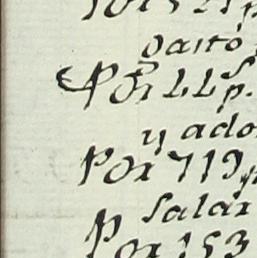 gastó
Por LL p.s
y ado
Por 719 p
salar
Por 153